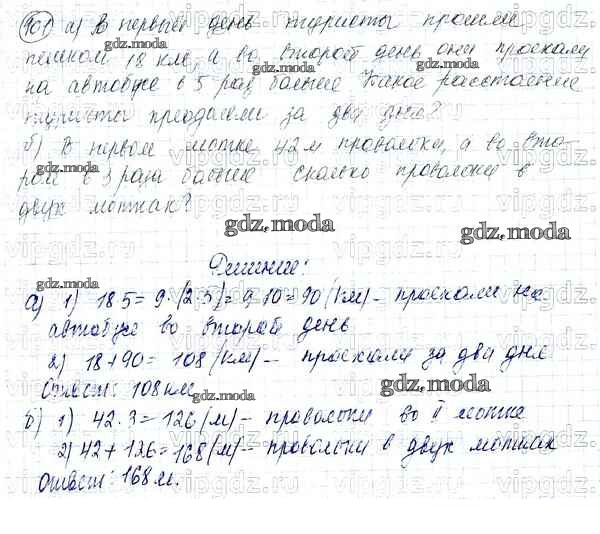 901 а) В первый день туристы прошли
пешком 18 км, а во второй день они проехали
на автобусе в 5 раз больше Какое расстояние
туристы преодолели за два дня?
б) В первом мотке 42 м проволоки, а во вто-
ром в 3 раза больше сколько проволоки в
двух мотках?
gdz.moda
Решение:
а) 1) 18·5 = 9·(2·5) = 9·10 = 90 (км) – проехали на
автобусе во второй день
2) 18+90 = 108 (км) – проехали за два дня
Ответ: 108 км
б) 1) 42·3 = 126 (м) – проволоки во II мотке
2) 42+126 = 168 (м) – проволоки в двух мотках
Ответ: 168 м.